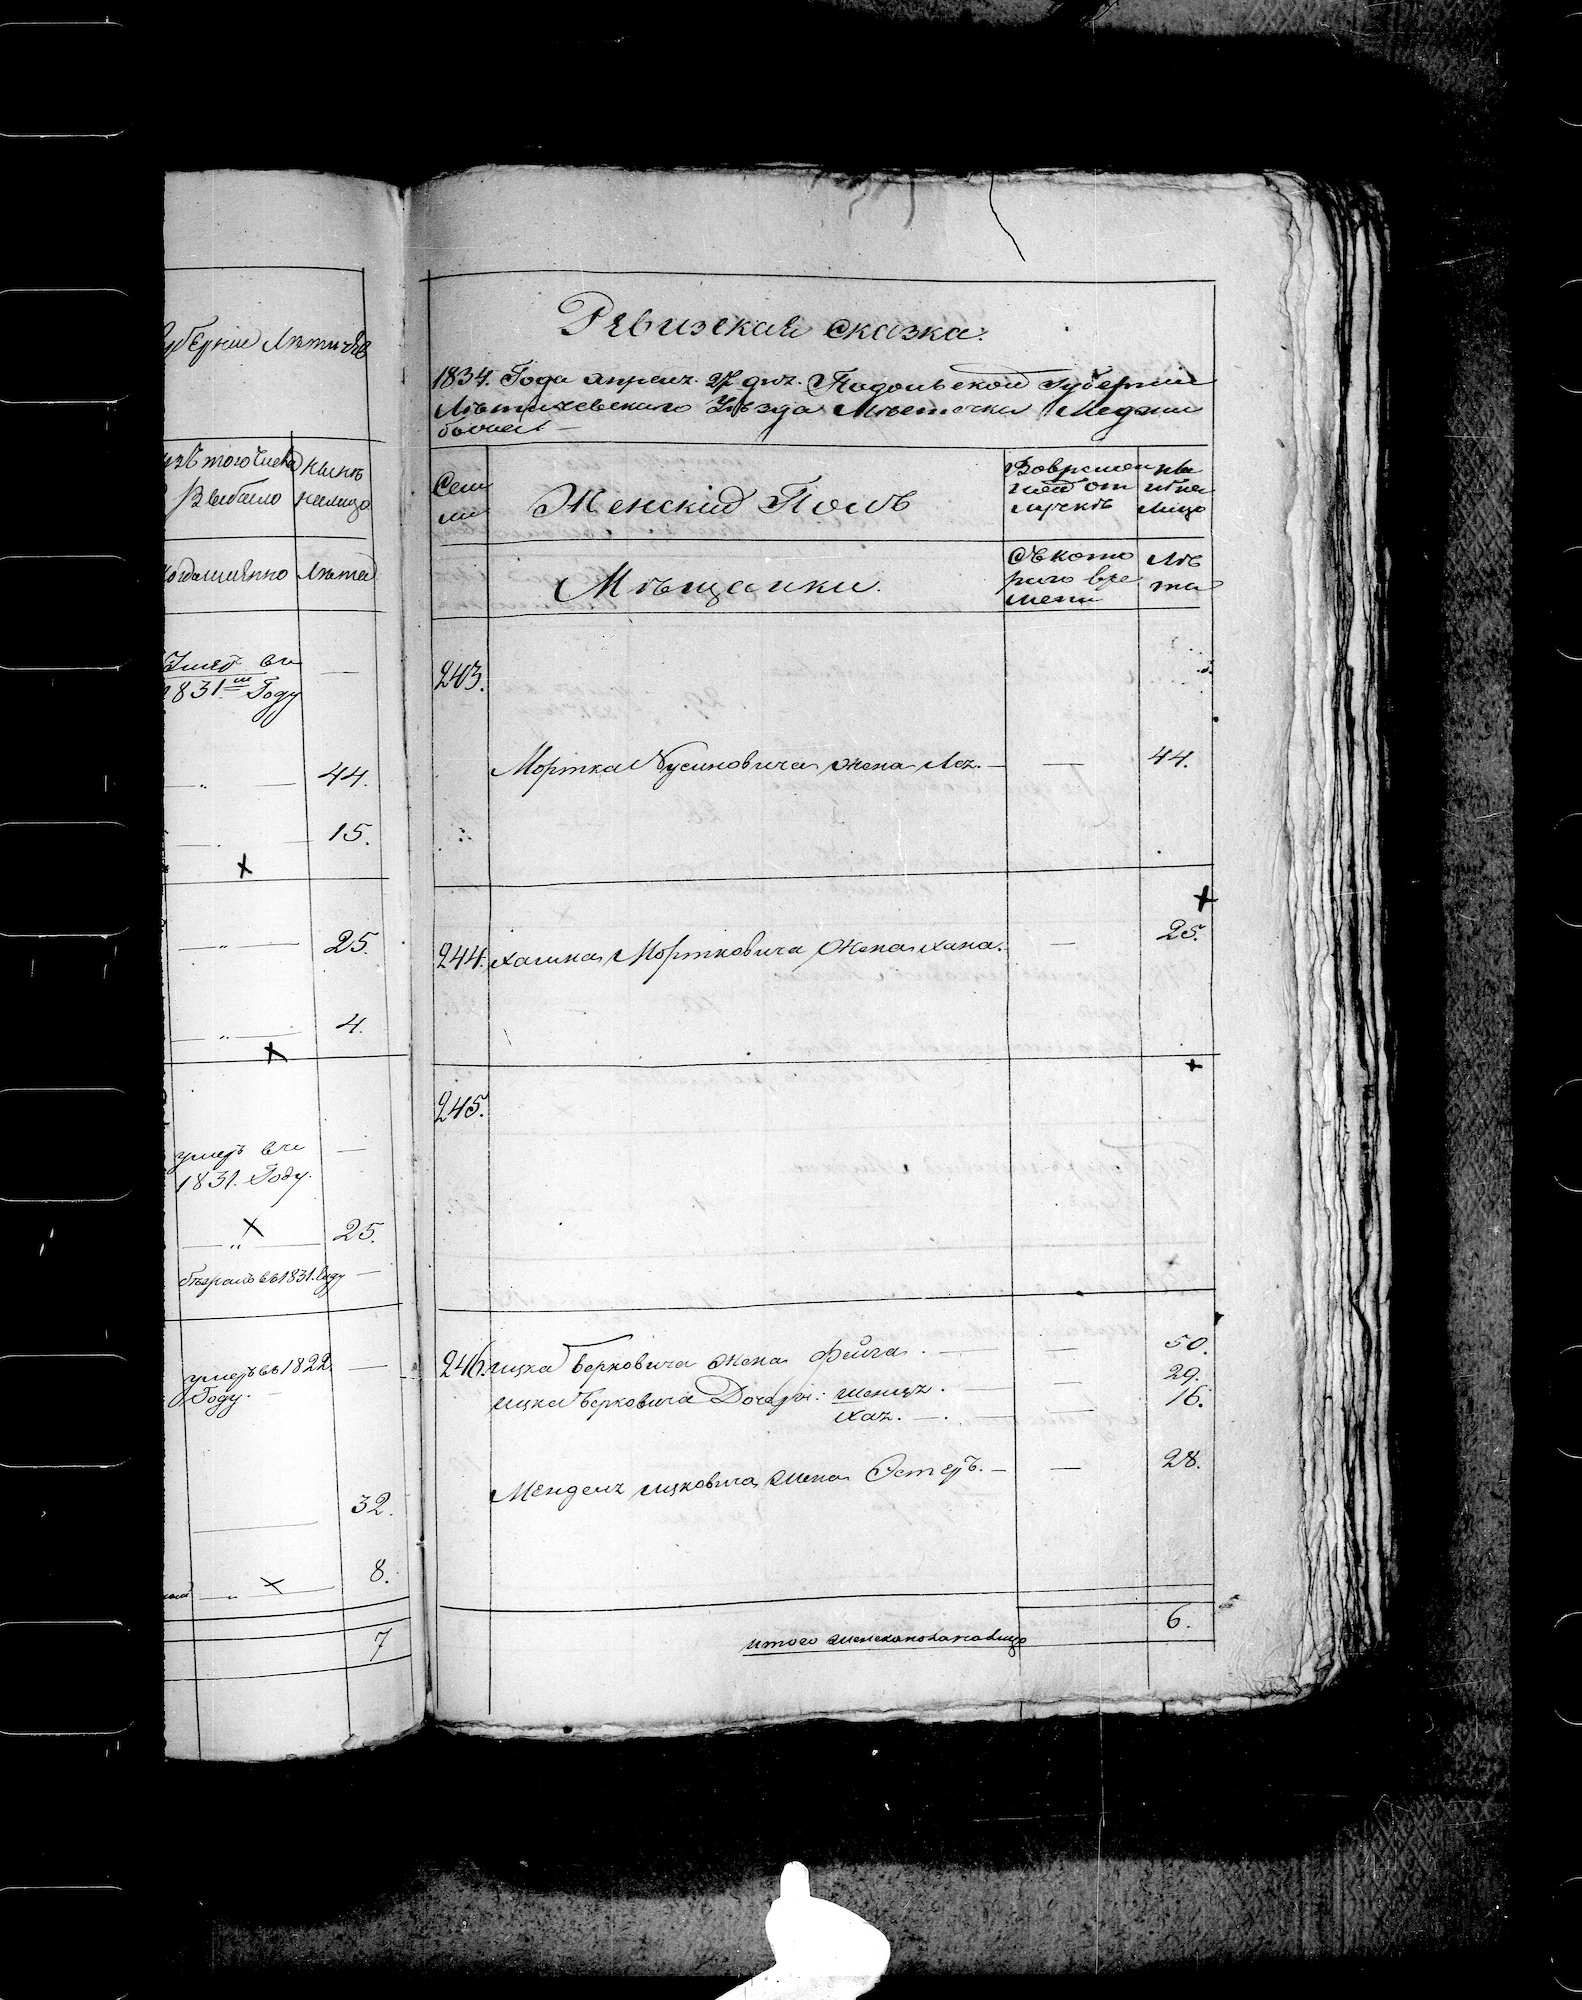 Губерніи Летичев
изъ того числа
выбыло
нынѣ
налицо
когда именно
Лѣта
Умер въ
1831м Году
44.
15.
25.
4.
умеръ въ
1831. Году.
25.
въ 1831. Году
умеръ въ 1822
Году.
32.
8.
7
Ревизская сказка.
1834. Года апреля 27 дня. Подольской Губерніи
Лѣтичевскаго Уѣзда Мѣстечка Меджи
божъ
Семи
Женскій Полъ
Во времен
ной от
лучкѣ
ны
нѣ на
лицо
Мѣщанки.
Съ кото
раго вре
мени
Лѣ
та
243.
Мортка Нусиновича жена — — 44.
244. Хаима Мортковича жена Хана. — 25.
245.
246. Ицка Берковича жена Фейга. — — 50.
Ицка Берковича Дочери: — — 29.
Хая. — — 16.
Мендель Ицковича жена Эстеръ. — — 28.
итого женска пола налицо
6.